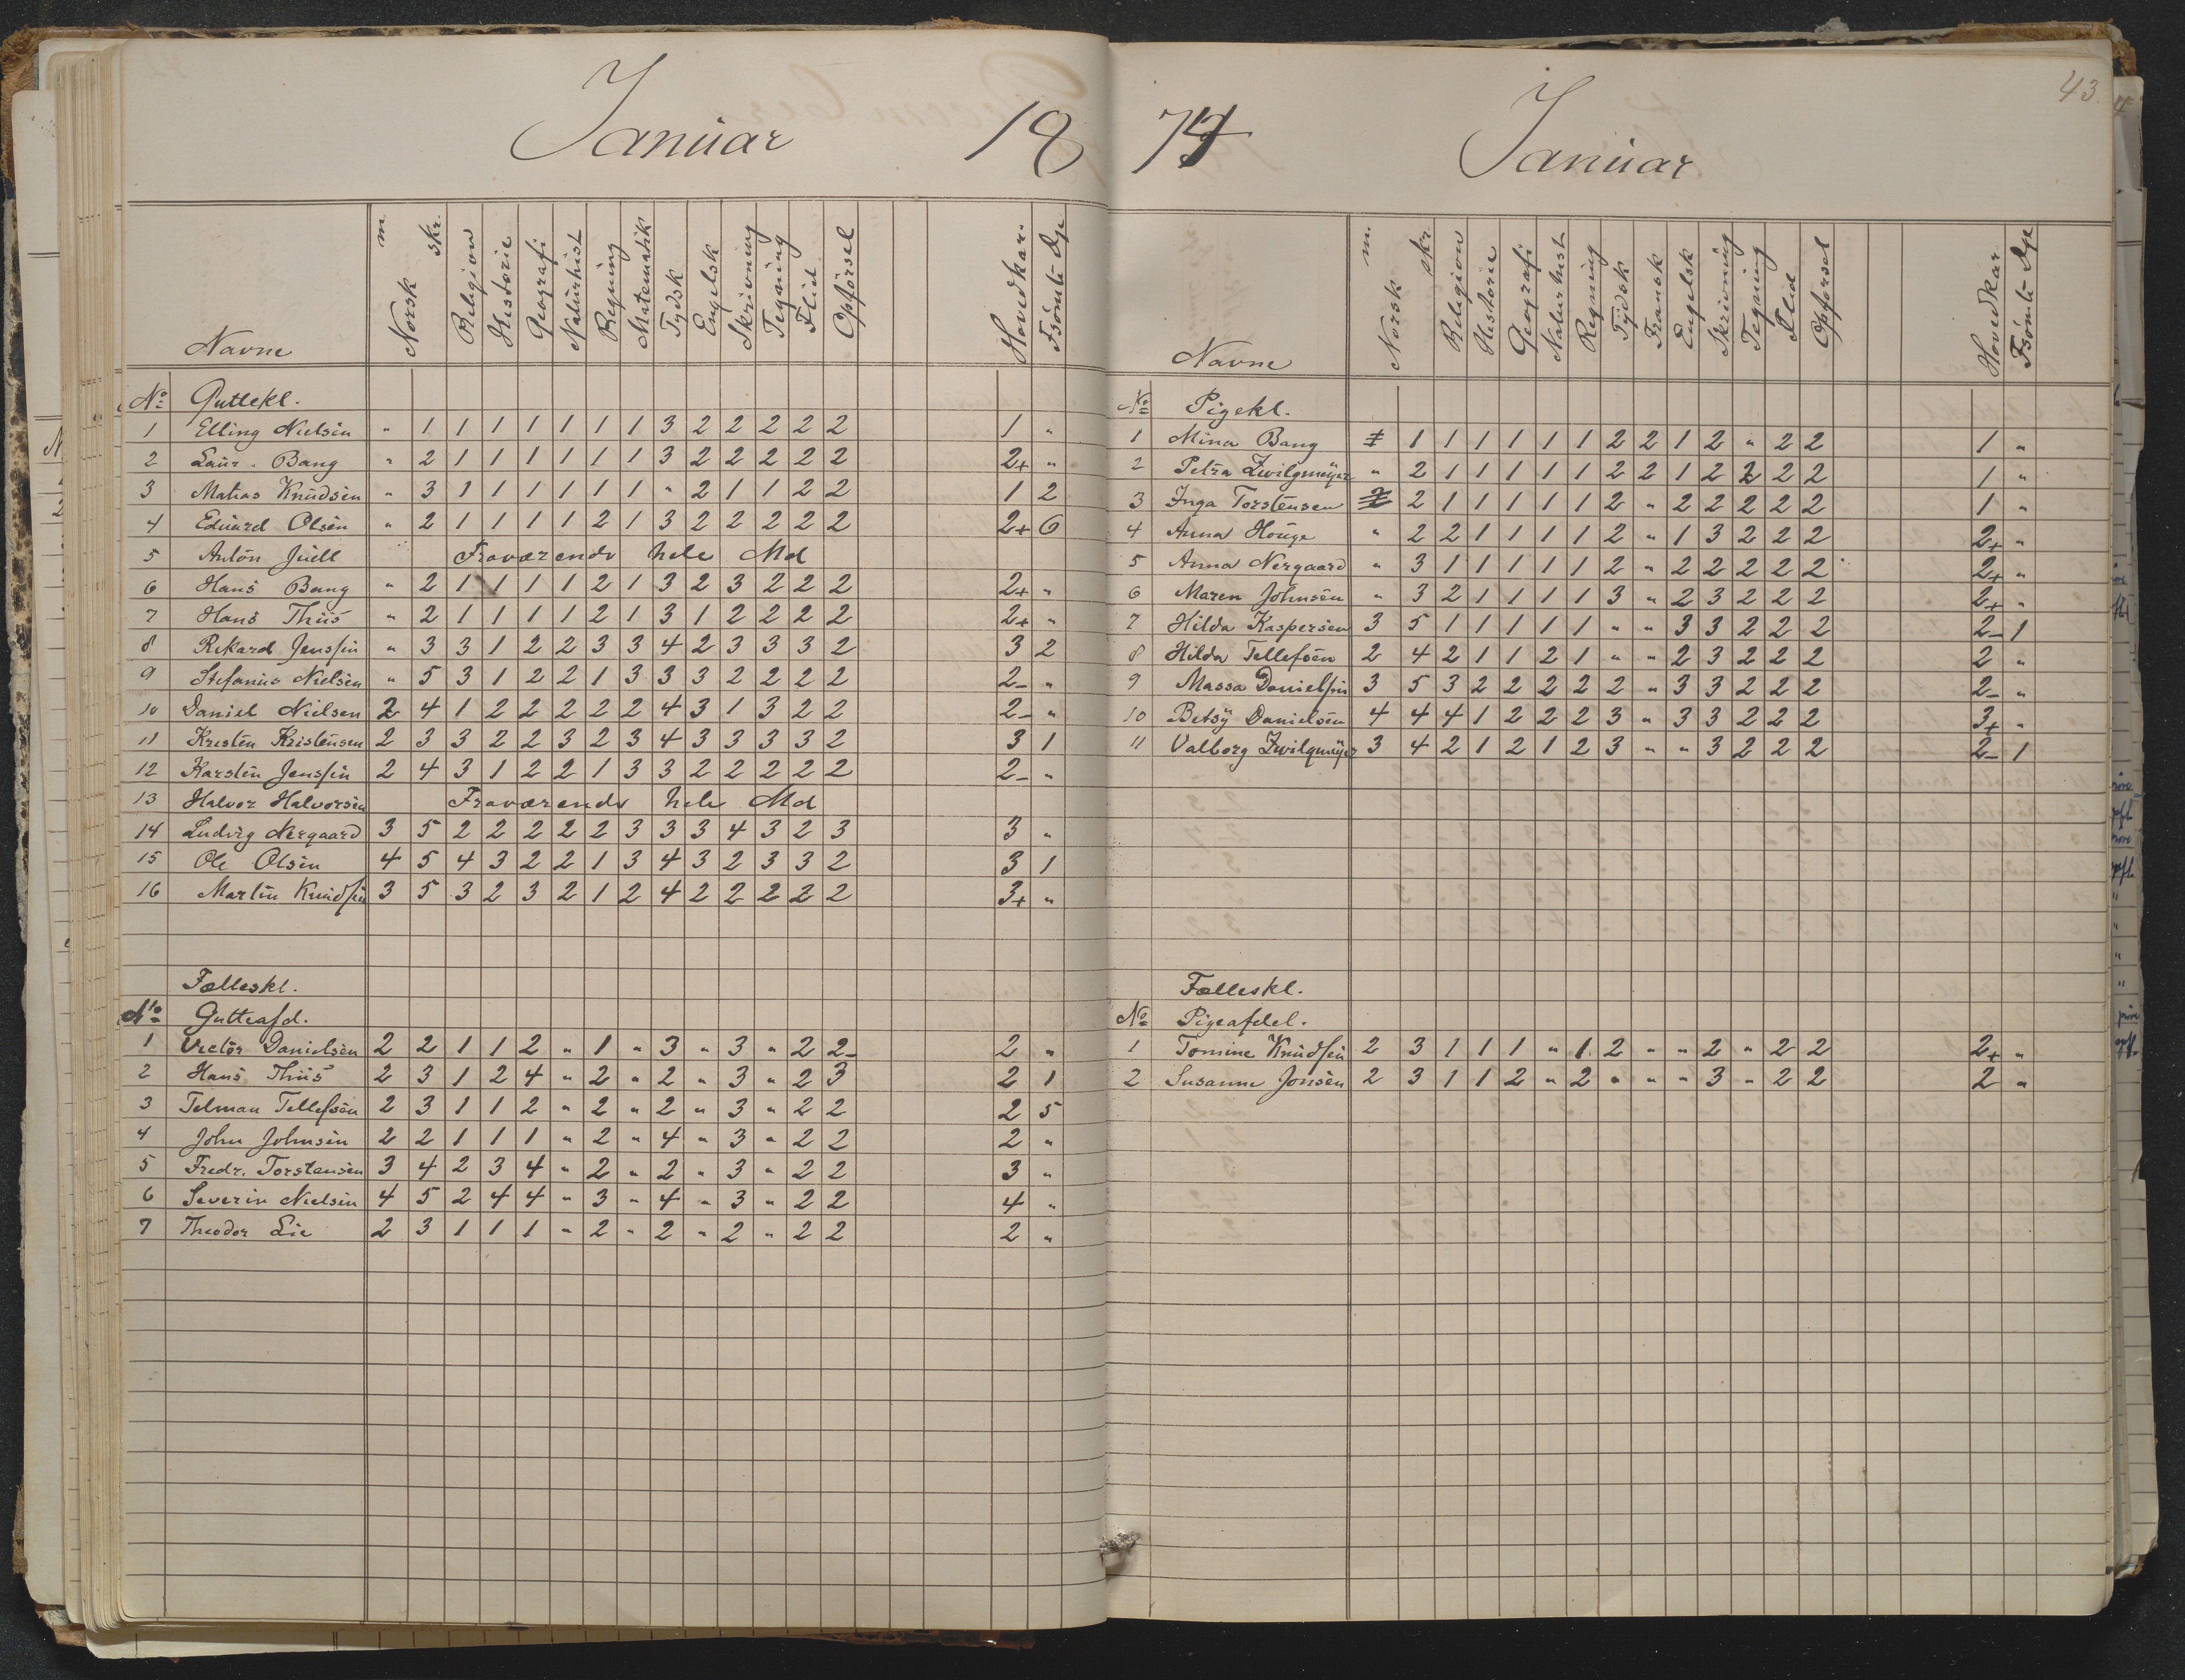 Januar 18
Navne Norsk m. skr. Religion Historie Geografi Naturhist Regning Matematik Tydsk Engelsk Skrivning Tegning Flid Opførsel Hovedkar. Fsömte Dge
No Guttekl.
1 Elling Nielsen " 1 1 1 1 1 1 1 3 2 2 2 2 2 1 "
2 Laur. Bang " 2 1 1 1 1 1 1 3 2 2 2 2 2 2+ "
3 Matias Knudsen " 3 1 1 1 1 1 1 " 2 1 1 2 2 1 2
4 Eduard Olsen " 2 1 1 1 1 2 1 3 2 2 2 2 2 2+ 6
5 Anton Juell Fraværende hele Md
6 Hans Bang " 2 1 1 1 1 2 1 3 2 3 2 2 2 2+ "
7 Hans Thiis " 2 1 1 1 1 2 1 3 1 2 2 2 2 2+ "
8 Rikard Jenssen " 3 3 1 2 2 3 3 4 2 3 3 3 2 3 2
9 Stefanus Nielsen " 5 3 1 2 2 1 3 3 3 2 2 2 2 2- "
10 Daniel Nielsen 2 4 1 2 2 2 2 2 4 3 1 3 2 2 2- "
11 Kristen Kristensen 2 3 3 2 2 3 2 3 4 3 3 3 3 2 3 1
12 Karsten Jenssen 2 4 3 1 2 2 1 3 3 2 2 2 2 2 2- "
13 Halvor Halvorsen Fraværende hele Md
14 Ludvig Nergaard 3 5 2 2 2 2 2 3 3 3 4 3 2 3 3 "
15 Ole Olsen 4 5 4 3 2 2 1 3 4 3 2 3 3 2 3 1
16 Martin Knudsen 3 5 3 2 3 2 1 2 4 2 2 2 2 2 3+ "
Fælleskl.
No Gutteafd.
1 Victor Danielsen 2 2 1 1 2 " 1 " 3 " 3 " 2 2- 2 "
2 Hans Thiis 2 3 1 2 4 " 2 " 2 " 3 " 2 3 2 1
3 Telman Tellefsen 2 3 1 1 2 " 2 " 2 " 3 " 2 2 2 5
4 John Johnsen 2 2 1 1 1 " 2 " 4 " 3 " 2 2 2 "
5 Fredr. Torstensen 3 4 2 3 4 " 2 " 2 " 3 " 2 2 3 "
6 Severin Nielsen 4 5 2 4 4 " 3 " 4 " 3 " 2 2 4 "
7 Theodor Lie 2 3 1 1 1 " 2 " 2 " 2 " 2 2 2 "
43
74 Januar
Navne Norsk m. skr. Religion Historie Geografi Naturhist Regning Tydsk Fransk Engelsk Skrivning Tegning Flid Opførsel Hovedkar. Fsömte Dge
No Pigekl.
1 Mina Bang 1 1 1 1 1 1 1 2 2 1 2 " 2 2 1 "
2 Petra Zwilgmeyer " 2 1 1 1 1 1 2 2 1 2 2 2 2 1 "
3 Inga Torstensen 2 2 1 1 1 1 1 2 " 2 2 2 2 2 1 "
4 Anna Houge " 2 2 1 1 1 1 2 " 1 3 2 2 2 2+ "
5 Anna Nergaard " 3 1 1 1 1 1 2 " 2 2 2 2 2 2+ "
6 Maren Johnsen " 3 2 1 1 1 1 3 " 2 3 2 2 2 2+ "
7 Hilda Kaspersen 3 5 1 1 1 1 1 " " 3 3 2 2 2 2- 1
8 Hilda Tellefsen 2 4 2 1 1 2 1 " " 2 3 2 2 2 2 "
9 Massa Danielsen 3 5 3 2 2 2 2 2 " 3 3 2 2 2 2- "
10 Betsy Danielsen 4 4 4 1 2 2 2 3 " 3 3 2 2 2 3+ "
11 Valborg Zwilgmeyer 3 4 2 1 2 1 2 3 " " 3 2 2 2 2- 1
Fælleskl.
No Pigeafdel.
1 Tomine Knudsen 2 3 1 1 1 " 1 2 " " 2 " 2 2 2+ "
2 Susanne Jonsen 2 3 1 1 2 " 2 " " " 3 " 2 2 2 "